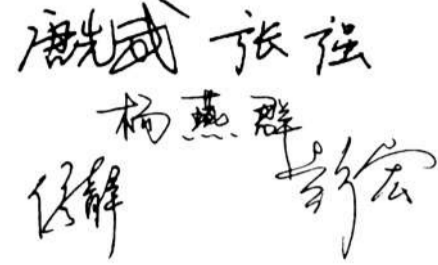 唐先成 张强
杨燕群
侯静 彭宏